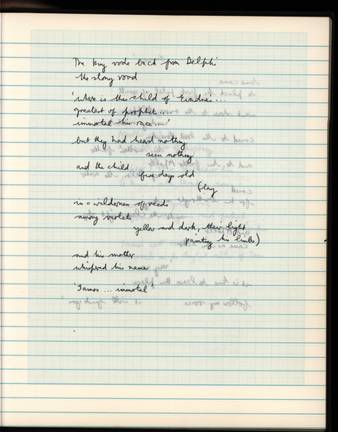 The king rode back from Delphi
the stony road
'where is the child of Evadne...
greatest of prophets...
immortal his race...'
but they had heard nothing
seen nothing
and the child five days old
(lay
in a wilderness of reeds
among violets
yellow and dark, their light
painting his limbs)
and his mother
whispered his name
'Iamos... immortal'